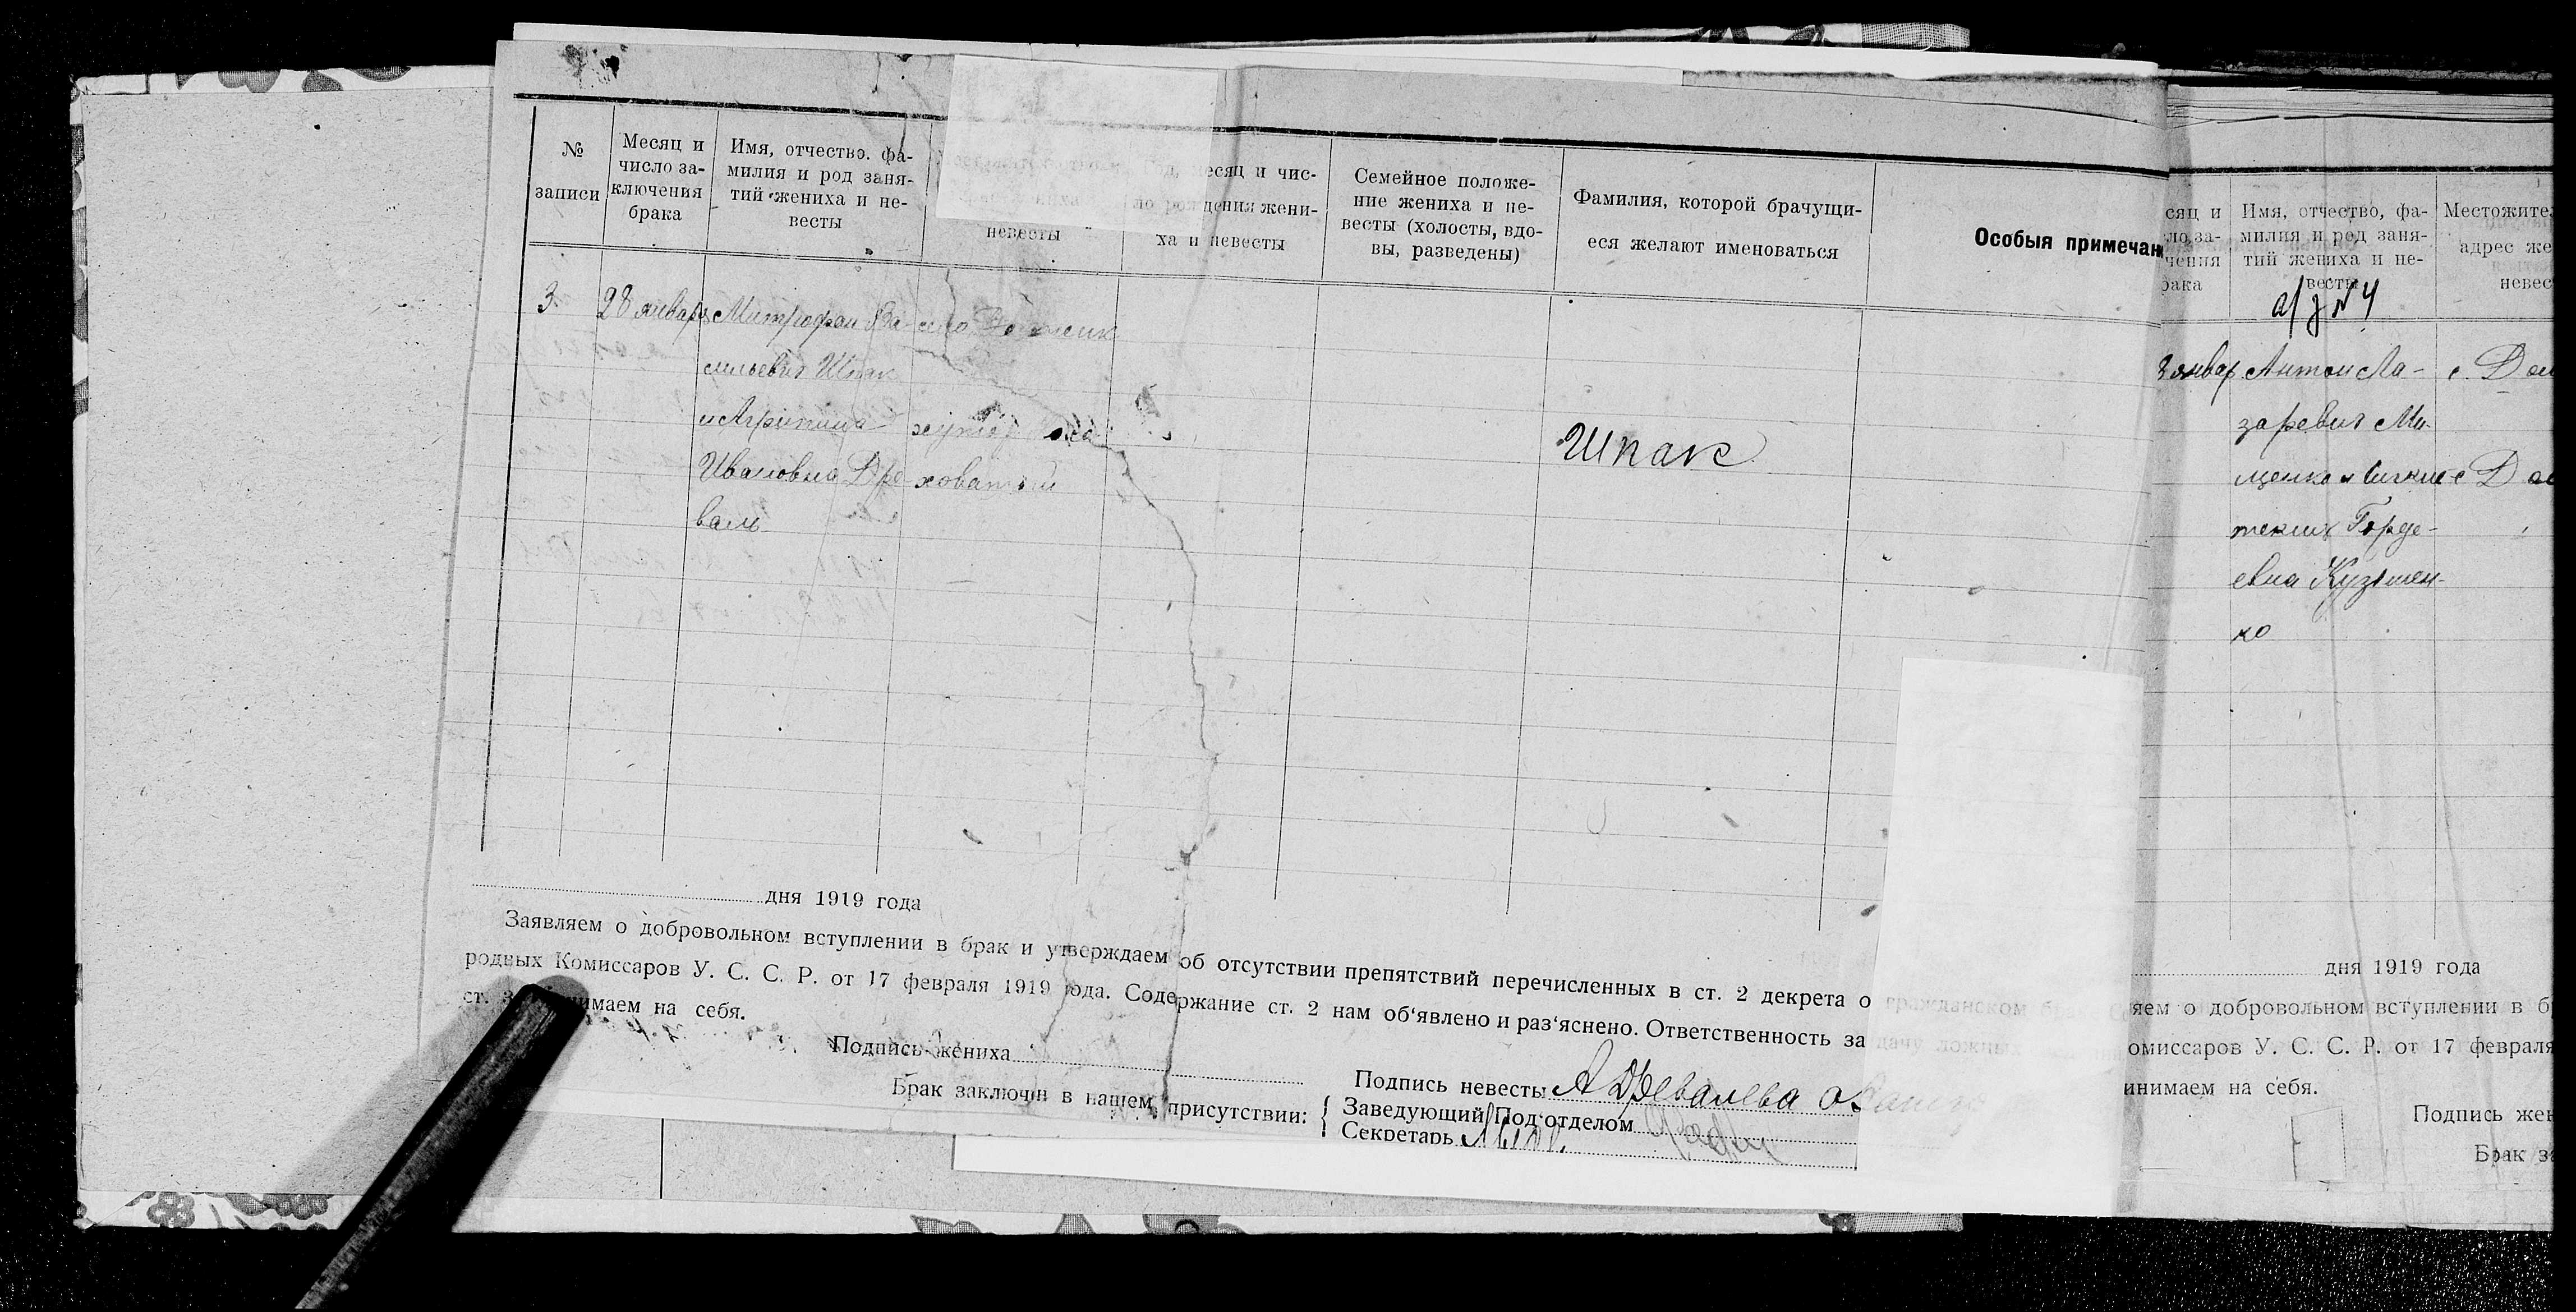 №
записи
Месяц и
число за-
ключения
брака
Имя, отчество. фа-
милия и род заня-
тий жениха и не-
весты
невесты
месяц и чис-
ло рождения жени-
ха и невесты
Семейное положе-
ние жениха и не-
весты (холосты, вдо-
вы, разведены)
Фамилия, которой брачущи-
еся желают именоваться
Особыя примечан
3
28 январь Митрофан Ва-
сильевич Шпак
и Агрипина хутор
Ивановна Дре-
валь
Шпак
дня 1919 года
Заявляем о добровольном вступлении в брак и утверждаем об отсутствии препятствий перечисленных в ст. 2 декрета о гражданском
родных Комиссаров У. С. С. Р. от 17 февраля 1919 года. Содержание ст. 2 нам об‘явлено и раз‘яснено. Ответственность за дачу ложных
ст. нимаем на себя.
Подпись жениха
Подпись невесты А Древалева
Брак заключен в нашем присутствии:
Заведующий Под‘отделом
Секретарь
сяц и
ло за-
чения
рака
Имя, отчество, фа-
милия и род заня-
тий жениха и не-
весты
Местожител
адрес же
невес
а/з №4
январ Антон Ла- с. Д
заревич Ми-
щенко и с Д
Горде-
евна Кузьмен-
ко
дня 1919 года
яем о добровольном вступлении в б
омиссаров У. С. С. Р. от 17 февраля
инимаем на себя.
Подпись жен
Брак за